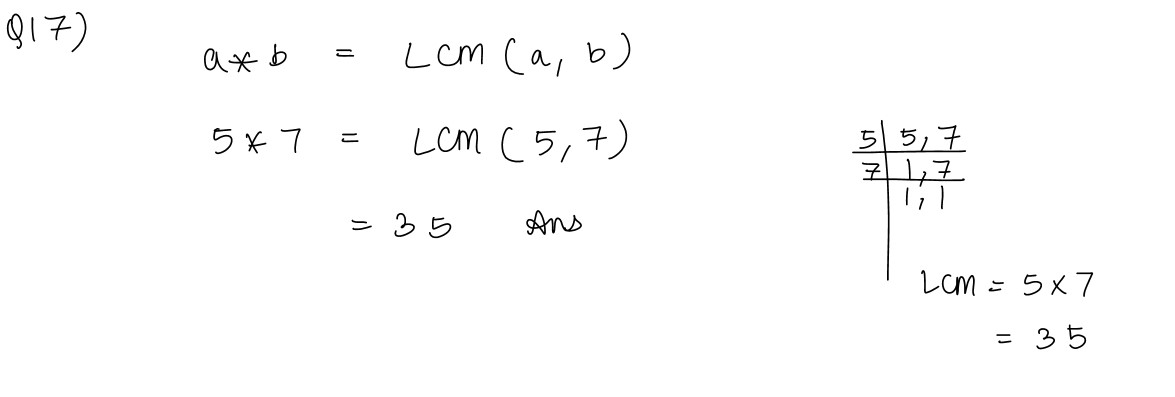 Q17)
a * b = LCM (a, b)
5 * 7 = LCM (5, 7)
= 35 Ans
5 | 5, 7
7 | 1, 7
1, 1
LCM = 5 × 7
= 35